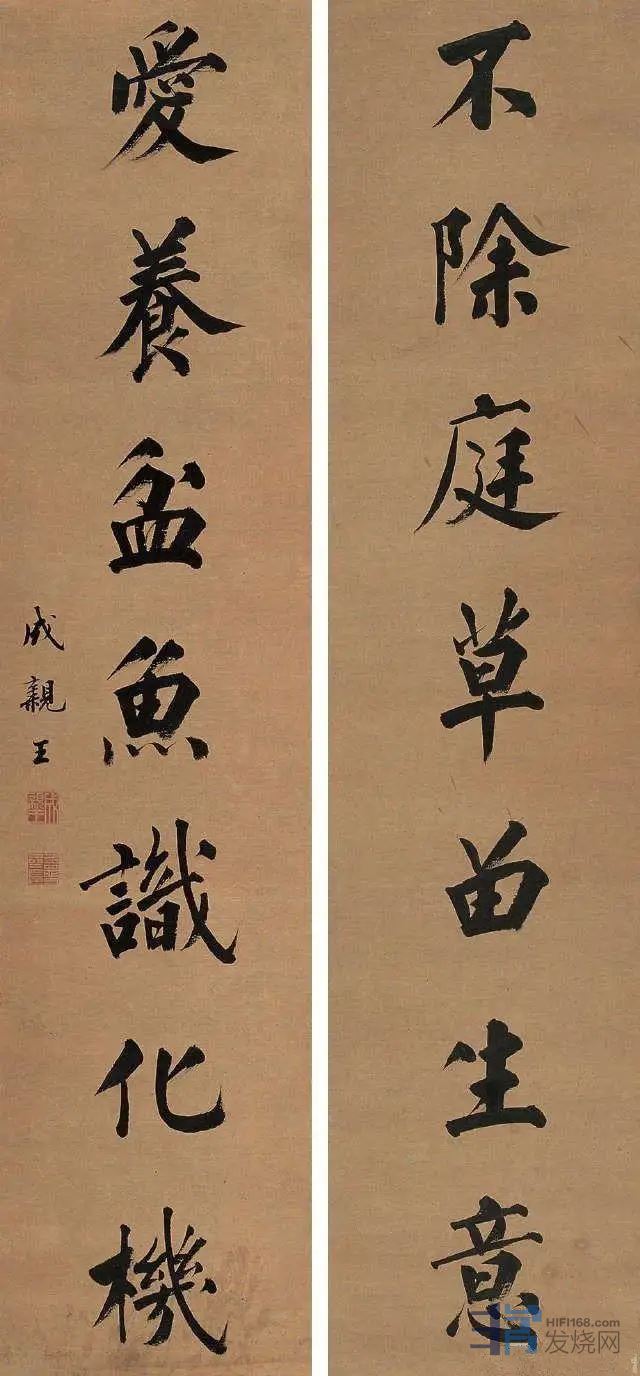 不除庭草留生意
愛養盆魚識化機
成親王
HIFI168.com
发烧网